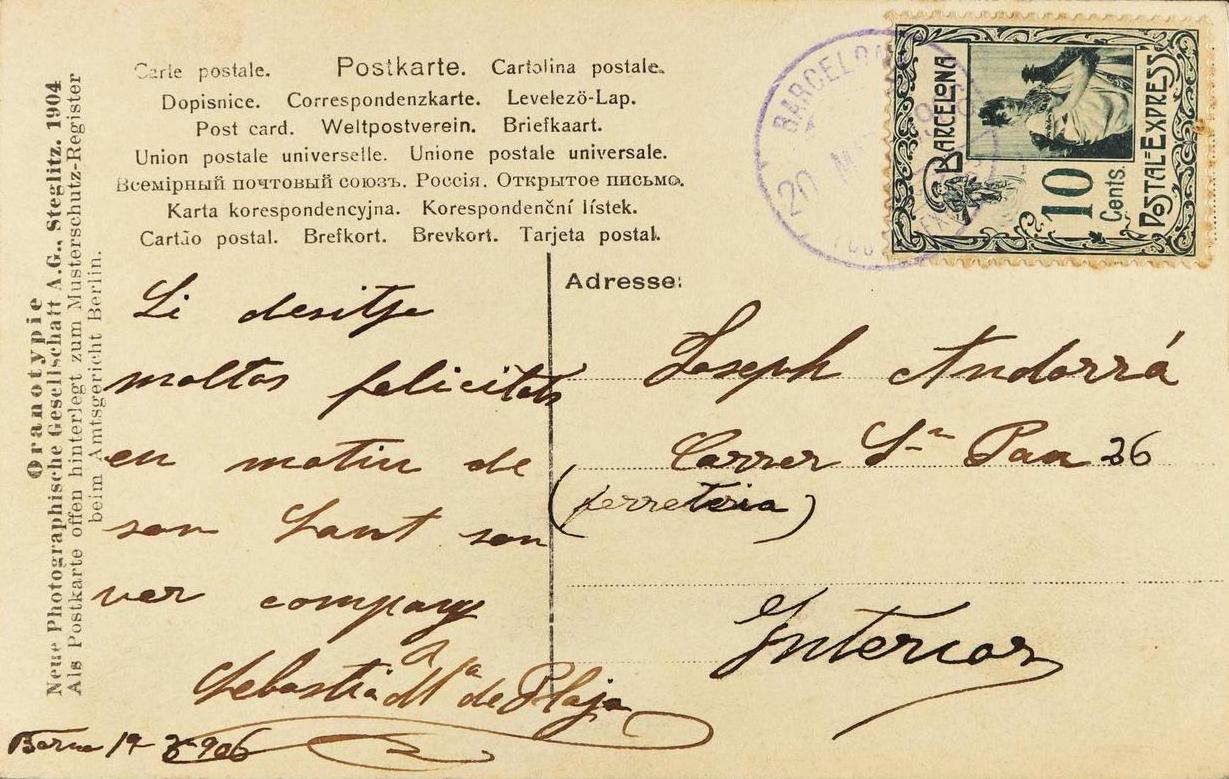 Carte postale. Postkarte. Cartolina postale.
Dopisnice. Correspondenzkarte. Levelezö-Lap.
Post card. Weltpostverein. Briefkaart.
Union postale universelle. Unione postale universale.
Всемірный почтовый союзъ. Россія. Открытое письмо.
Karta korespondencyjna. Korespondenční lístek.
Cartão postal. Brefkort. Brevkort. Tarjeta postal.
Oranotypie
Neue Photographische Gesellschaft A.G., Steglitz. 1904
Als Postkarte offen hinterlegt zum Musterschutz-Register
beim Amtsgericht Berlin.
BARCELONA
20
BARCELONA
10
Cents.
POSTAL-EXPRESS
Li desitje
moltas felicitats
en motiu de
son Sant son
ver company
Sebastiá Mª de Plaja
Barna 19 906
Adresse:
Joseph Andorrá
Carrer Sn Pau 36
(ferreteria)
Interior